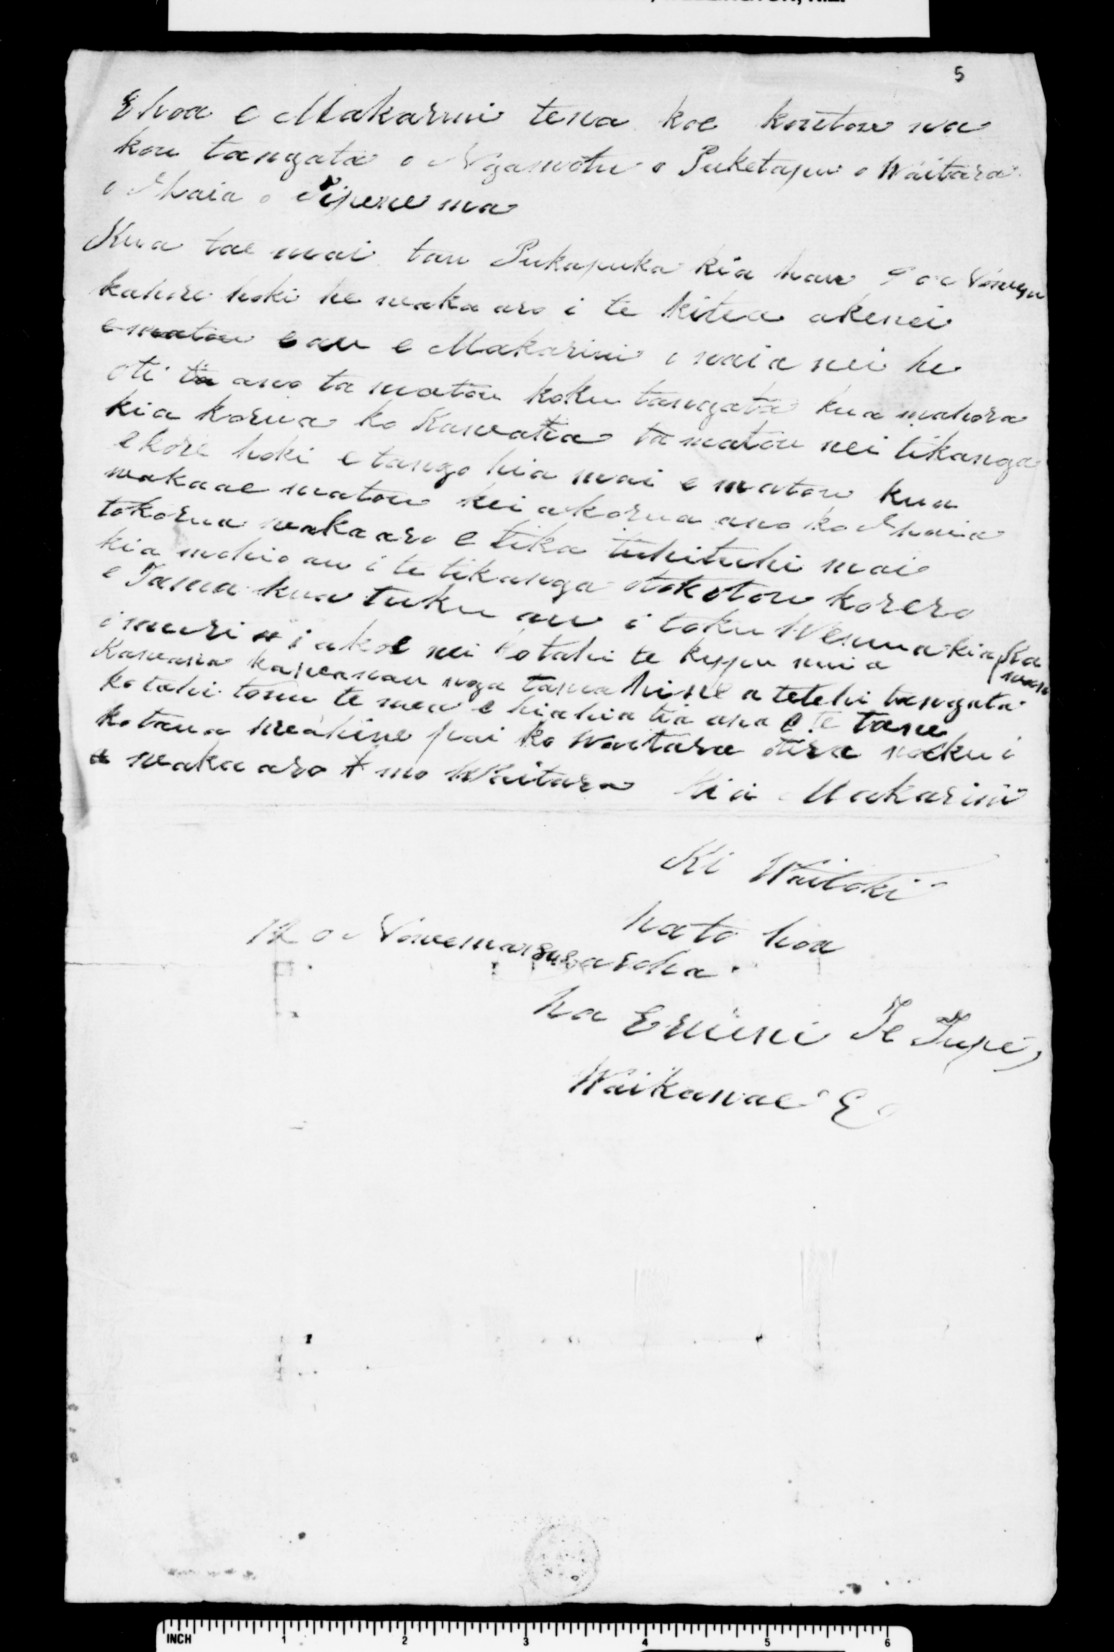 5
E hoa e Makarini tena koe koutou na
kou tangata o Ngamotu o Puketapu o Waitara
o Ihaia o Tipene ma
Kua tae mai tau Pukapuka kia hau 9 o Nowem
kahore hoki he wakaaro i te kitea akenei
e matou e au e Makarini i naia nei he
oti ta ano ta matou koku tangata kua mahora
kia korua ko Kawana ta matou nei tikanga
e kore hoki e tango hia mai e matou kua
wakaae matou kei a korua ano ko Ihaia
tokorua wakaaro e tika tuhituhi mai
kia mohio au i te tikanga otokotou korero
e Tama kua tuku au i toku Wenua kia
i muri i a koe nei kotahi te kupu nui a
Kawana nga tamahine a tetehi tangata
kotahi tonu te mea e hiahia tia ana e te tane
ko taua weahine pai ko Waitara otira naeku i
a wakaaro mo Whaitara Kia Makarini
Ki Waitoki
na to hoa
12 o Nowema aroha
na Eruini Te Tupe
Waikanae
INCH 1 2 3 4 5 6